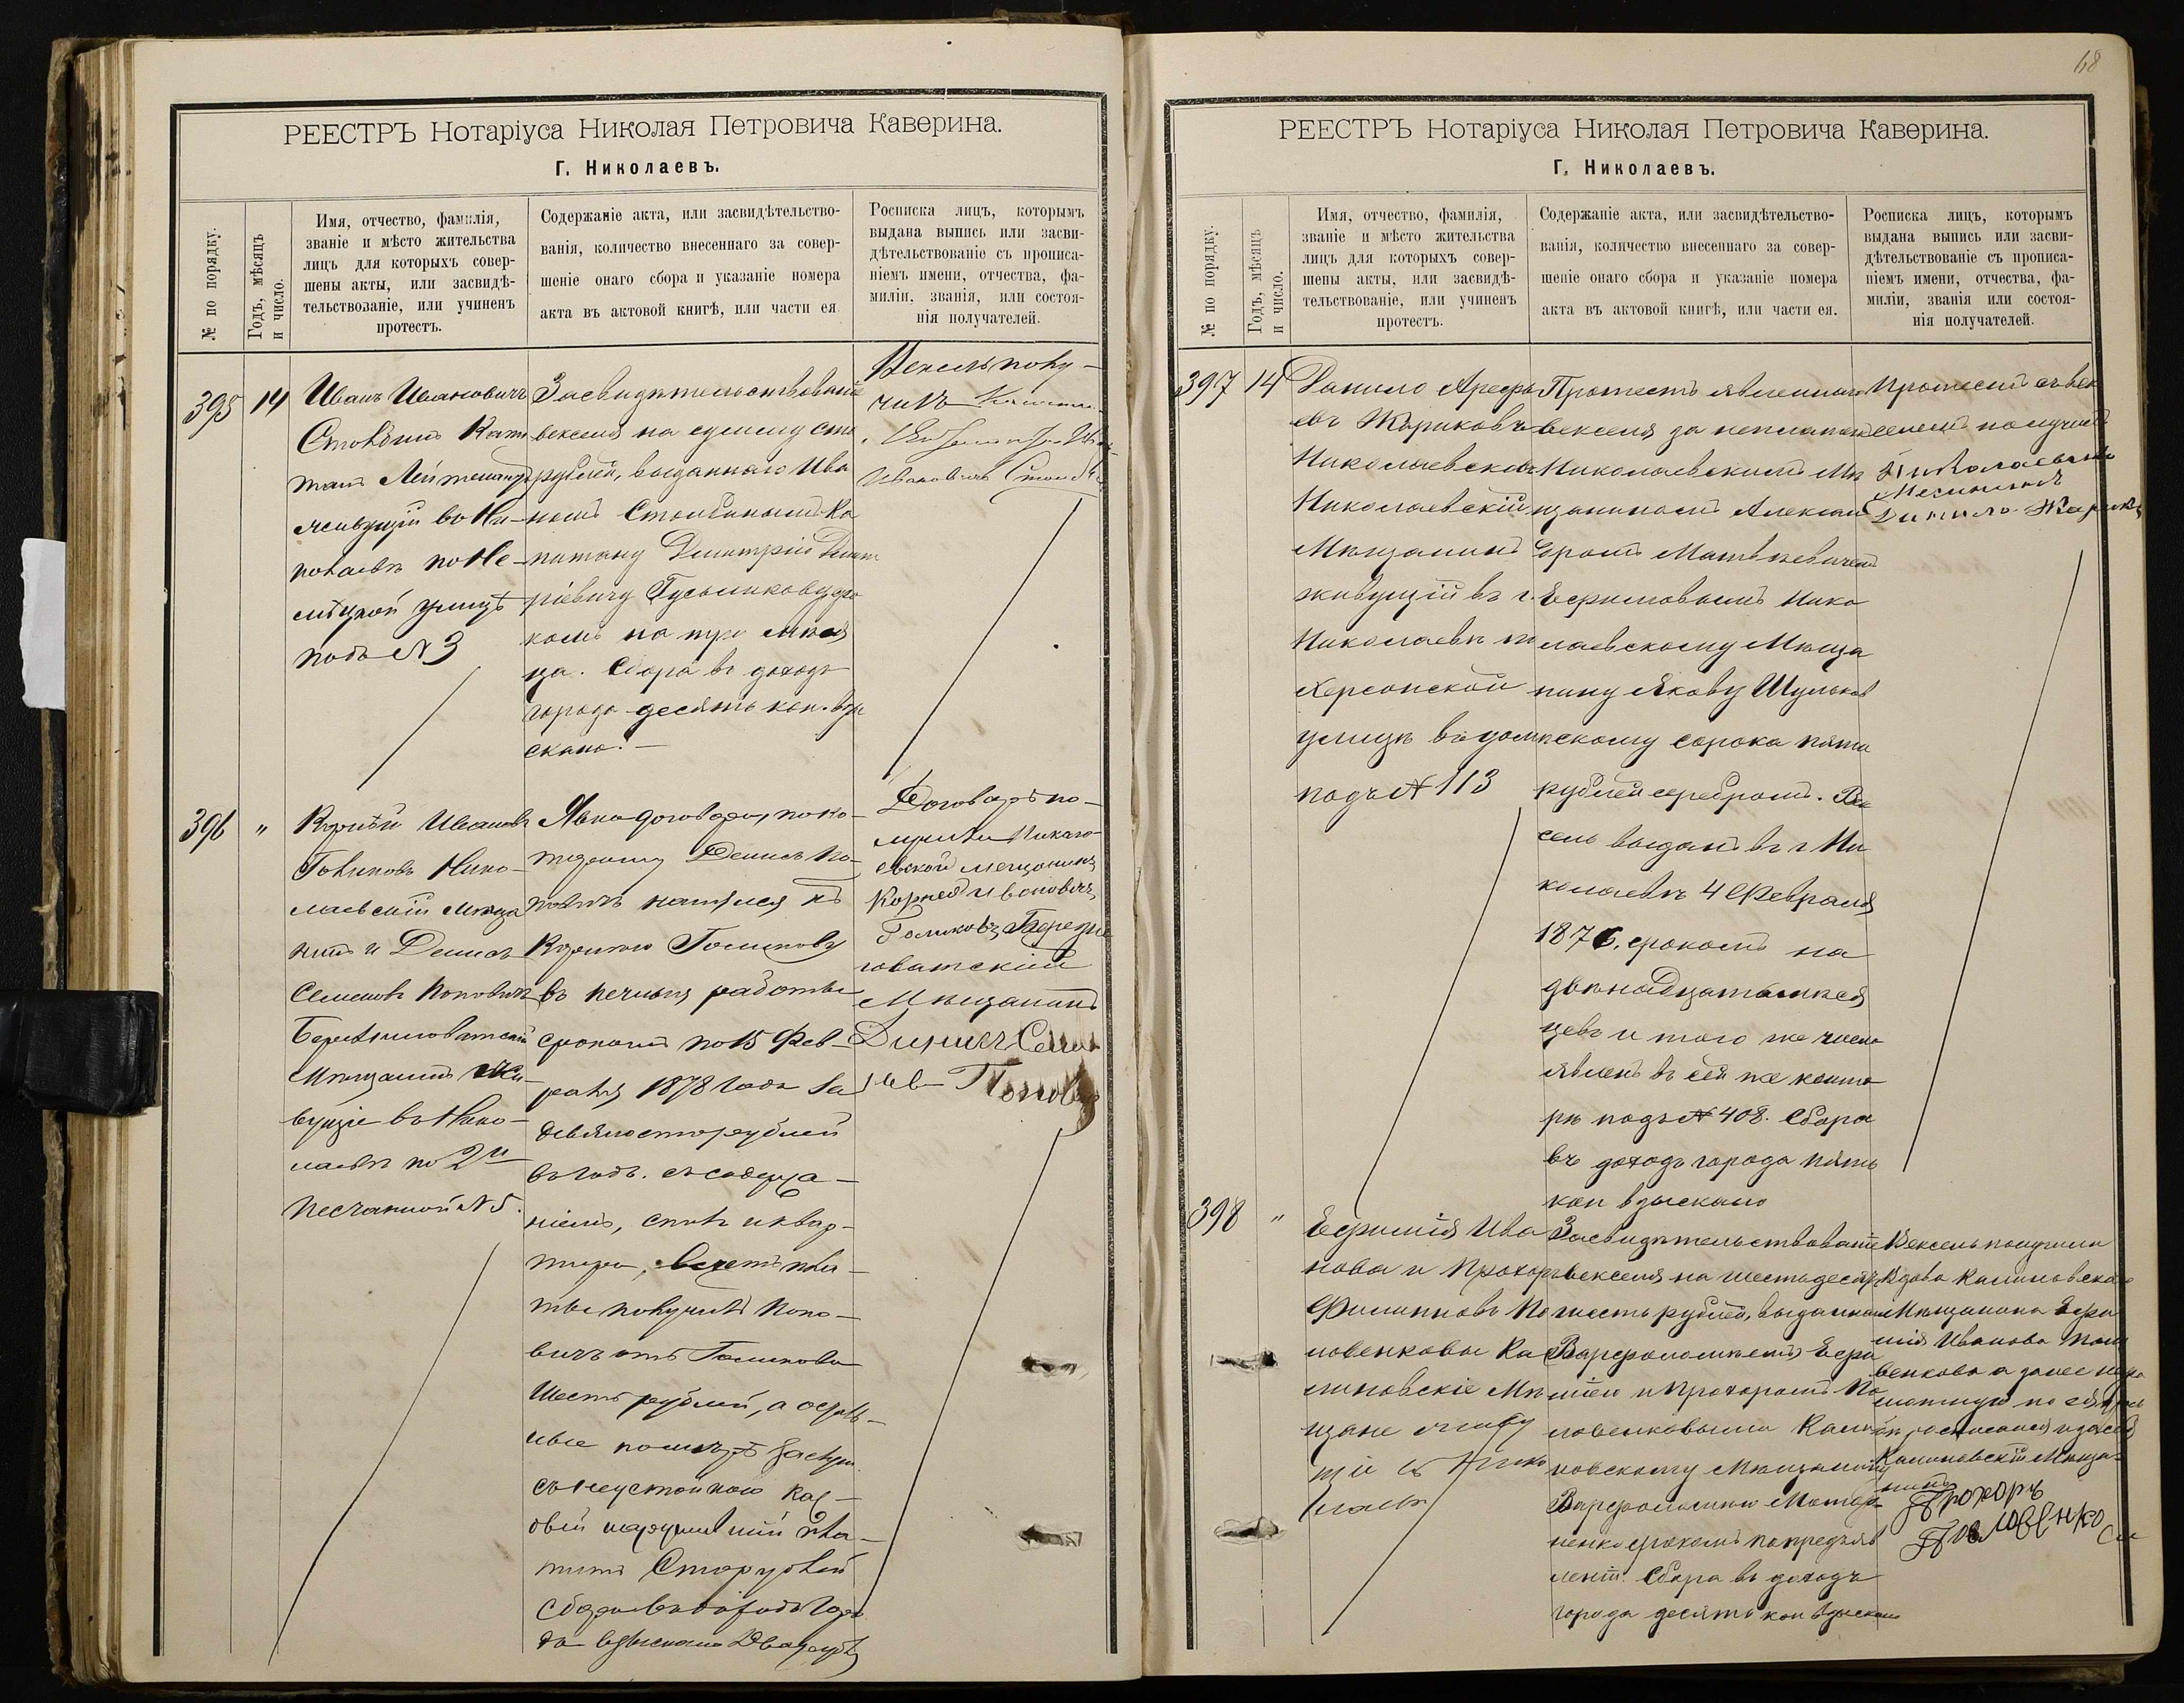 РЕЕСТРЪ Нотаріуса Николая Петровича Каверина.
Г. Николаевъ.
№ по порядку.
Годъ, мѣсяцъ
и число.
Имя, отчество, фамилія,
званіе и мѣсто жительства
лицъ для которыхъ совер-
шены акты, или засвидѣ-
тельствованіе, или учиненъ
протестъ.
Содержаніе акта, или засвидѣтельство-
ванія, количество внесеннаго за совер-
шеніе онаго сбора и указаніе номера
акта въ актовой книгѣ, или части ея
Росписка лицъ, которымъ
выдана выпись или засви-
дѣтельствованіе съ прописа-
ніемъ имени, отчества, фа-
миліи, званія, или состоя-
нія получателей.
395
14
Иванъ Ивановичъ
Капи
танъ Лейтенантъ
живущій въ Ни-
колаевѣ по Не-
мѣцкой улицѣ
подъ № 3
Засвидѣтельствованіе
векселя на сумму сто
рублей, выданнаго Ива
номъ Ка
питану Дмитрію Дмит
ріевичу сро
комъ на три мѣся
ца. Сбора въ доходъ
города десять коп. взы
скано. —
Вексель полу-
чилъ
Ивановичъ
396
"
Корній Ивановъ
Голиковъ Нико-
лаевскій мѣща
нинъ и Денисъ
Семеновъ Поповичъ
Березниговатскій
мѣщанинъ жи-
вущіе въ Нико-
лаевѣ по 2й
Песчаной № 5.
Явка договора, по ко-
торому Денисъ По-
повичъ нанялся къ
Корнію Голикову
въ печныя работы
срокомъ по 15 Фев-
раля 1878 года за
девяносто рублей
въ годъ. съ содержа-
ніемъ,
тиры,
ты получилъ Попо-
вичъ отъ Голикова
шесть рублей, а осталь-
ные
съ неустойкою каж-
овый нарушившій пла-
титъ Сто рублей
Сбора въ доходъ горо
да взыскано Два рубля
Договоръ по-
лучили Никола-
евской мещанинъ
Корней Ивановичъ
Голиковъ, Березне
говатскій
Мѣщанинъ
Динисъ Семе
новъ Поповичъ
68
РЕЕСТРЪ Нотаріуса Николая Петровича Каверина.
Г. Николаевъ.
№ по порядку.
Годъ, мѣсяцъ
и число.
Имя, отчество, фамилія,
званіе и мѣсто жительства
лицъ для которыхъ совер-
шены акты, или засвидѣ-
тельствованіе, или учиненъ
протестъ.
Содержаніе акта, или засвидѣтельство-
ванія, количество внесеннаго за совер-
шеніе онаго сбора и указаніе номера
акта въ актовой книгѣ, или части ея.
Росписка лицъ, которымъ
выдана выпись или засви-
дѣтельствованіе съ прописа-
ніемъ имени, отчества, фа-
миліи, званія или состоя-
нія получателей.
397
14
Данило Арефь
евъ Жариковъ
Николаевскій
Мѣщанинъ
живущій въ г.
Николаевѣ по
Херсонской
улицѣ въ домѣ
подъ № 113
Протестъ явленнаго
векселя за неплатежъ
Николаевскимъ Мѣ
щаниномъ Алексан
дромъ Матвѣевичемъ
Ефимовымъ Нико
лаевскому Мѣща
нину Якову
скому сорока пяти
рублей серебромъ. Век
сель выданъ въ г Ни
колаевѣ 4 Февраля
1876. срокомъ на
двѣнадцать мѣся
цевъ и того же числа
явленъ въ сей же конто
рѣ подъ № 408. Сбора
въ доходъ города пять
коп взыскано
Протестъ съ век
селемъ получилъ
Николаевскій
Мещанинъ
Данило Жариковъ
398
"
Ефимія Ива
нова и Прохоръ
Филипповъ По
ловенковы Ка
линовскіе Мѣ
щане живу
щіе въ Нико
лаевѣ
Засвидѣтельствованіе
векселя на шестьдесятъ
шесть рублей, выданнаго
Ефи
міею и Прохоромъ По
ловенковыми Кали
новскому Мѣщанину
срокомъ по предъяв
леніи. Сбора въ доходъ
города десять коп взыскано
Вексель получили
Вдова Калиновская
Мѣщанка Ефи
мія Иванова Поло
венкова а за нее негра
мотную по ея прось
бѣ росписался и за себя
Калиновскій Мѣща-
нинъ
Прохоръ
Половенко